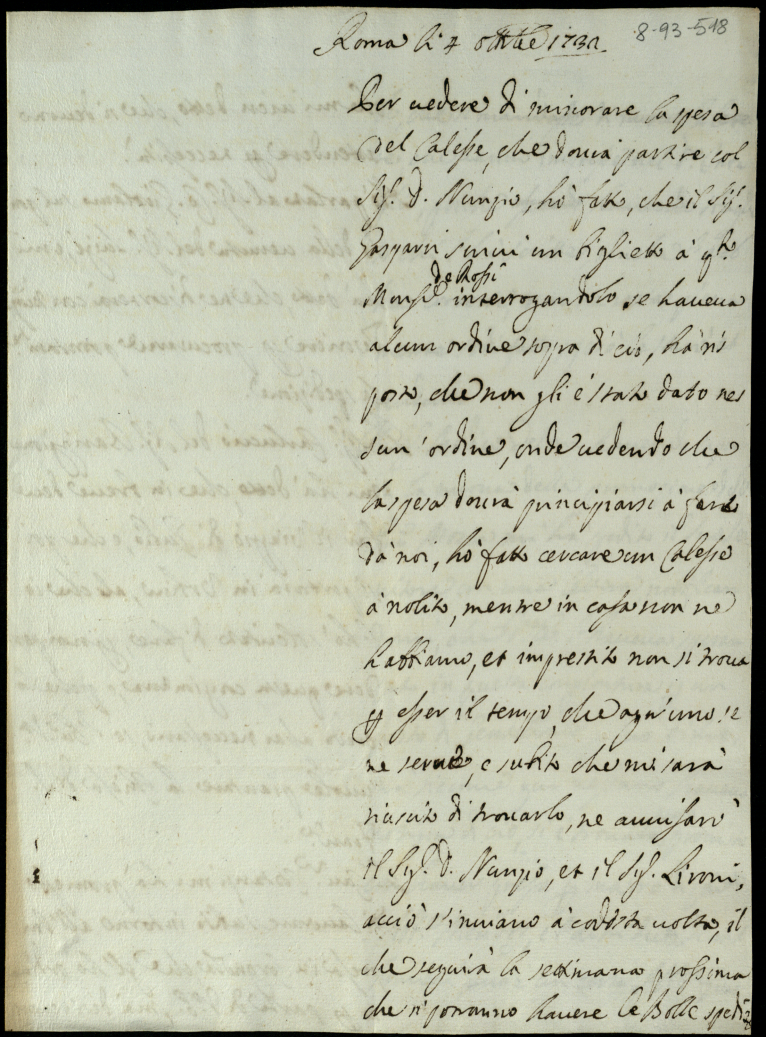 8-93-518
Roma li 4 ottbre 1732.
Per vedere di minorare la spesa
del Calesse, che dovrà partire col
Sig.r D. Nunzio, hò fatto, che il Sig.r
Gasparri scrivi un biglietto à q.to
Mons.r De Rossi interrogandolo se haveva
alcun ordine sopra di ciò, hà ris
posto, che non gli è stato dato nes
sun' ordine, onde vedendo che
la spesa dovrà principiarsi à fare
dà noi, hò fatto cercare un Calesse
à nolito, mentre in casa non ne
habbiamo, et imprestito non si trova
p esser il tempo, che ogn'uno se
ne serve, e subito che mi sarà
riuscito di trovarlo, ne avvisarò
il Sig.r D. Nunzio, et il Sig.r Lironi,
acciò s'inviano à codesta volta, il
che seguirà la settimana prossima
che si potranno havere le Bolle spediz